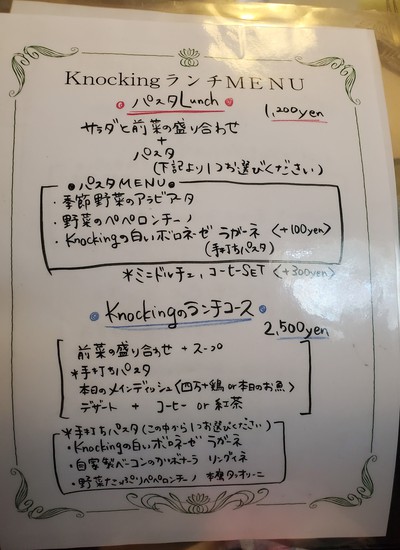 KnockingランチMENU
パスタLunch
1,200yen
サラダと前菜の盛り合わせ
+
パスタ
(下記より1つお選びください)
パスタMENU
・季節野菜のアラビアータ
・野菜のペペロンチーノ
・Knockingの白いボロネーゼ ラザーネ <+100yen>
(手打ちパスタ)
*ミニドルチェ, コーヒーSET <+300yen>
Knockingのランチコース
2,500yen
前菜の盛り合わせ + スープ
*手打ちパスタ
本日のメインディッシュ<四万十鶏 or 本日のお魚>
デザート + コーヒー or 紅茶
*手打ちパスタ(この中から1つお選びください)
・Knockingの白いボロネーゼ ラザーネ
・自家製ベーコンのカルボナーラ リングイネ
・野菜たっぷりペペロンチーノ